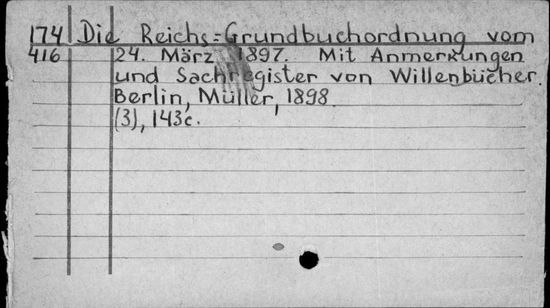 174 Die Reichs=Grundbuchordnung vom
416 24. März 1897. Mit Anmerkungen
und Sachregister von Willenbücher.
Berlin, Müller, 1898
(3), 143c.